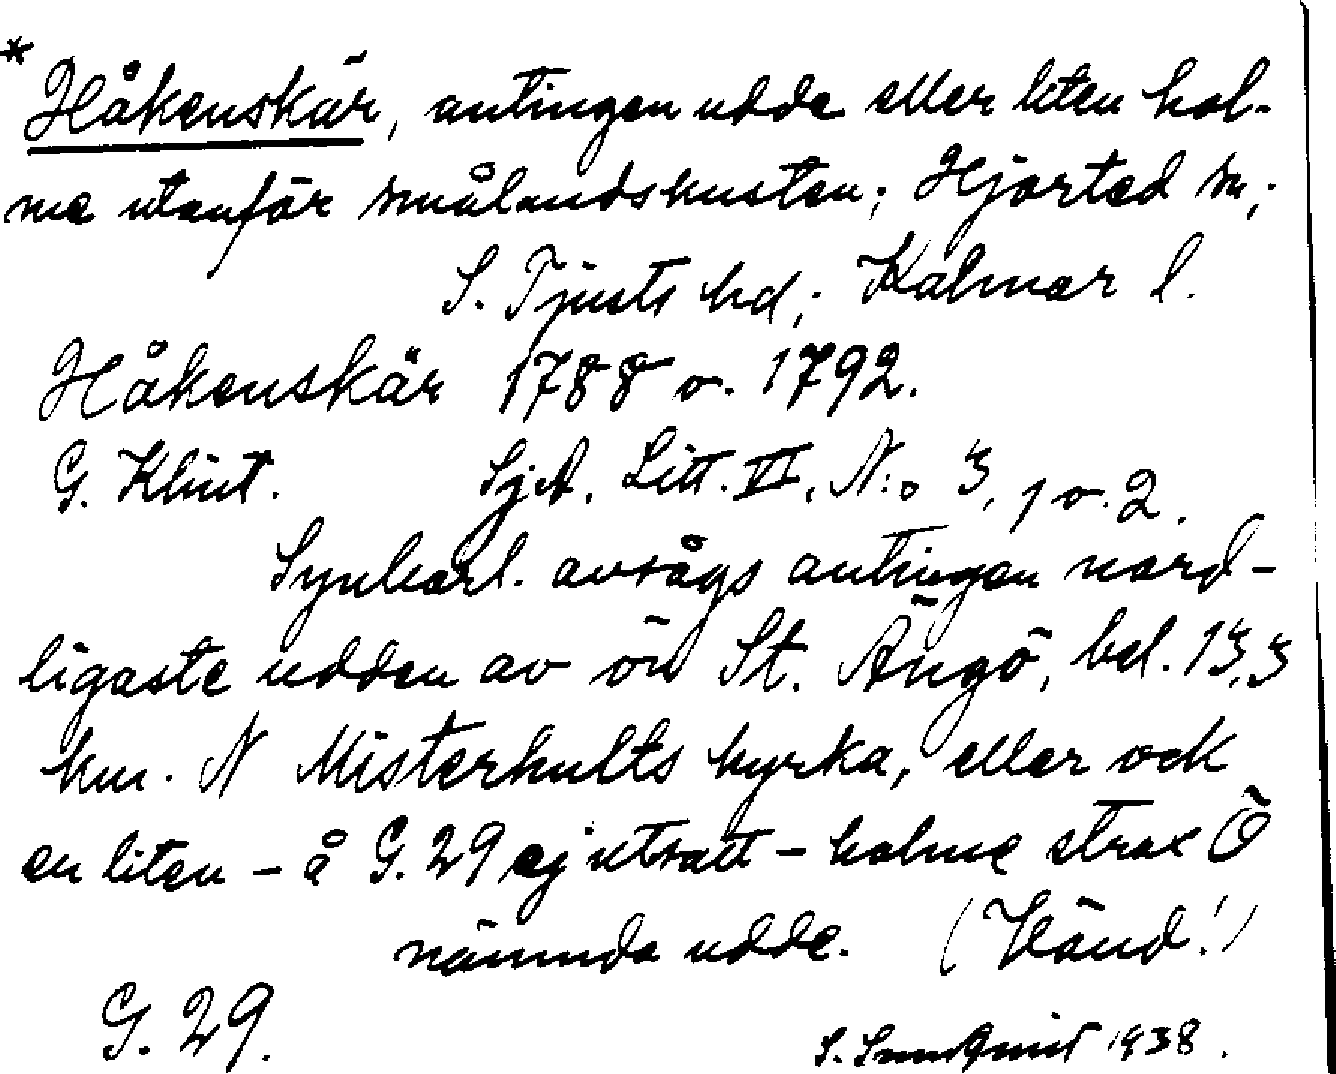 * Håkenskär, antingen udde eller liten hol-
me utanför smålandskusten; Hjorted sn;
S. Tjusts hd; Kalmar l.
Håkenskär 1788 o. 1792.
G. Klint. Sjöt. Litt. VI, N:o 3, 1 o. 2.
Synbarl. avsågs antingen nord-
ligaste udden av ön St. Ängö, bel. 13,3
km. N Misterhults kyrka, eller ock
en liten - å G. 29 ej utsatt - holme strax Ö
nämnda udde. (Vänd!)
G. 29.
S. 1938.